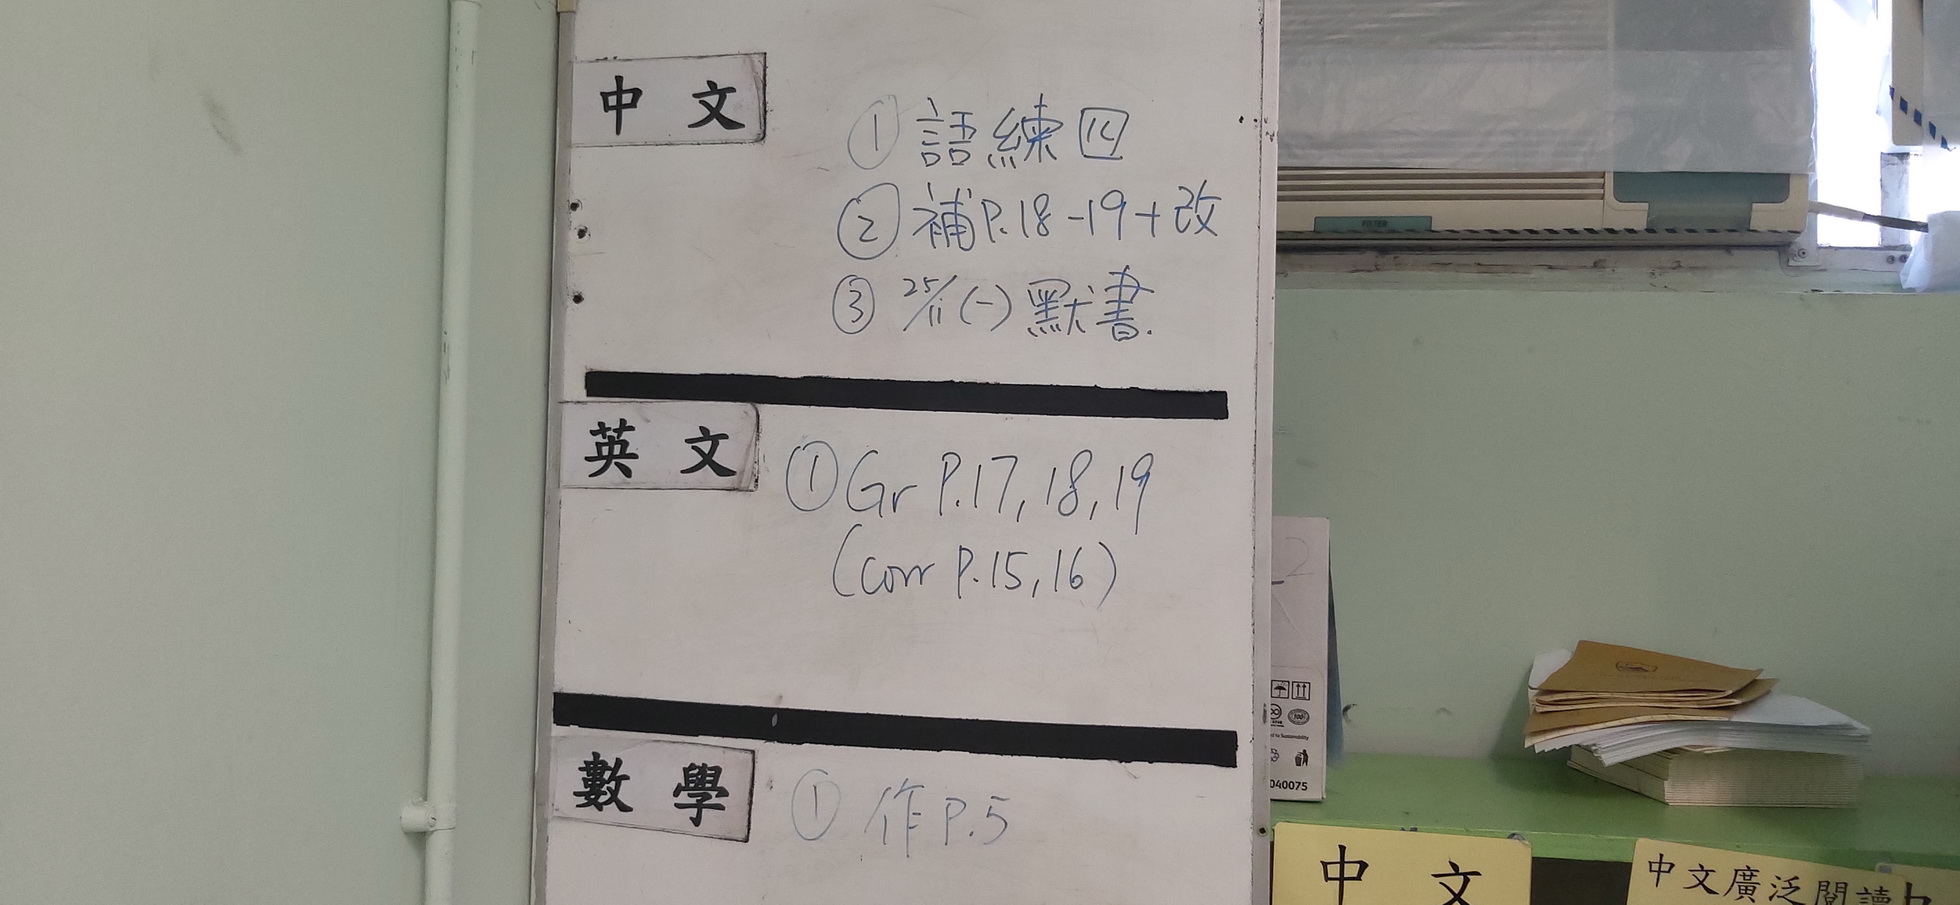 中文
① 語練四
② 補P.18-19+改
③ 25/11(一)默書.
英文
① Gr P.17, 18, 19
(corr P.15, 16)
數學
① 作P.5
FILTER
2
100%
040075
中文
中文廣泛閱讀